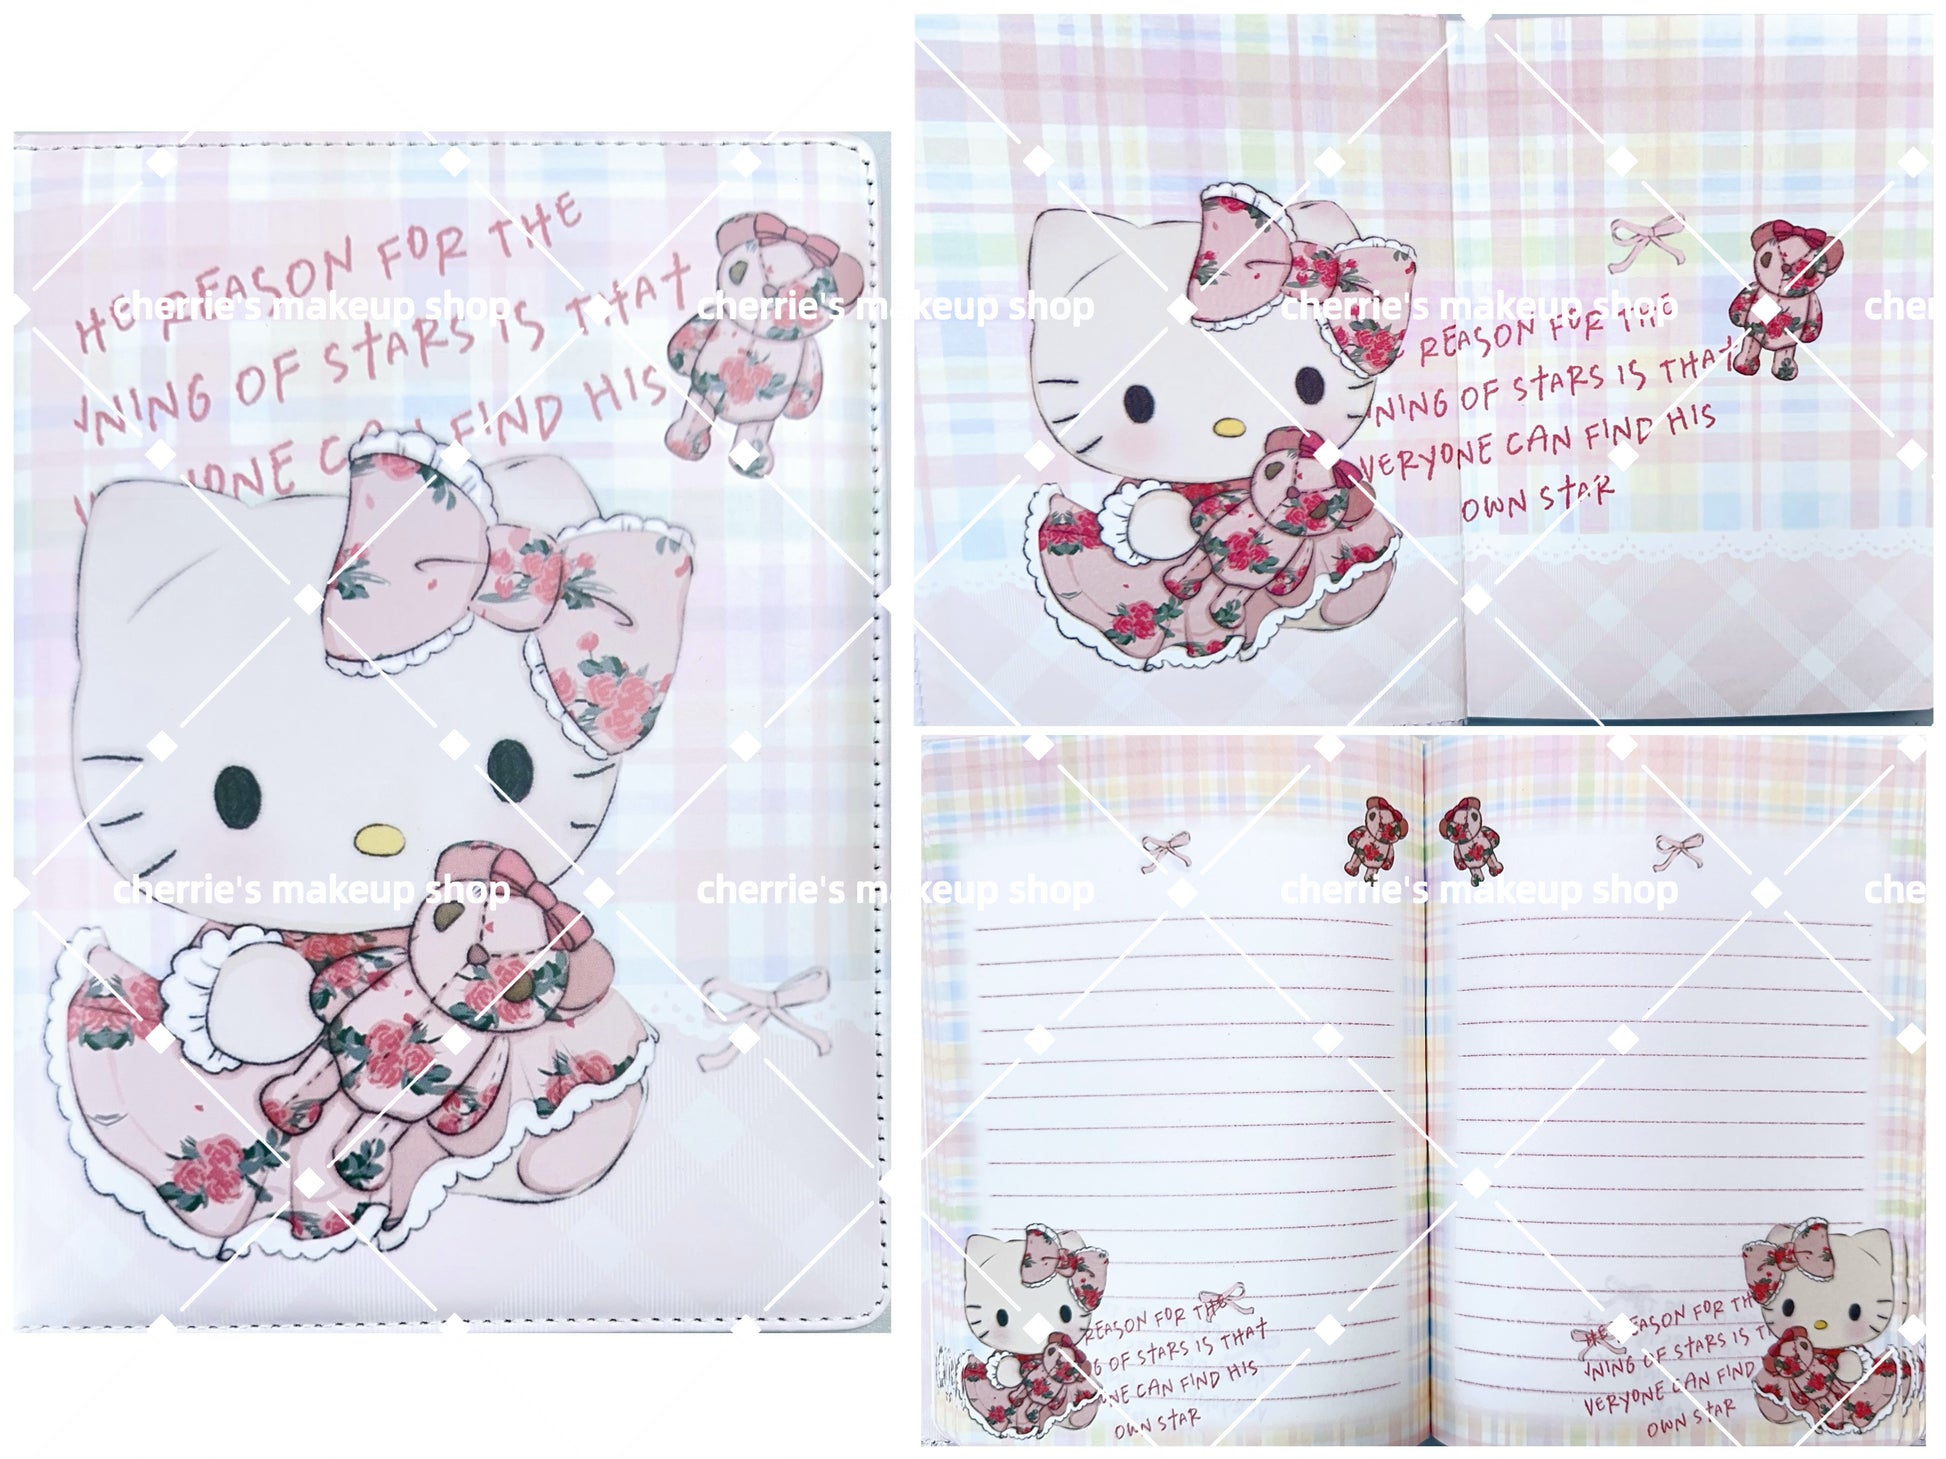 HE REASON FOR THE
NING OF STARS IS THAT
ONE CAN FIND HIS
REASON FOR THE
NING OF STARS IS THAT
VERYONE CAN FIND HIS
OWN STAR
REASON FOR THE
G OF STARS IS THAT
NE CAN FIND HIS
OWN STAR
HE REASON FOR TH
NING OF STARS IS T
VERYONE CAN FIND
OWN STAR
cherrie's makeup shop
cherrie's makeup shop
cherrie's makeup shop
che
cherrie's makeup shop
cherrie's makeup shop
cherrie's makeup shop
che